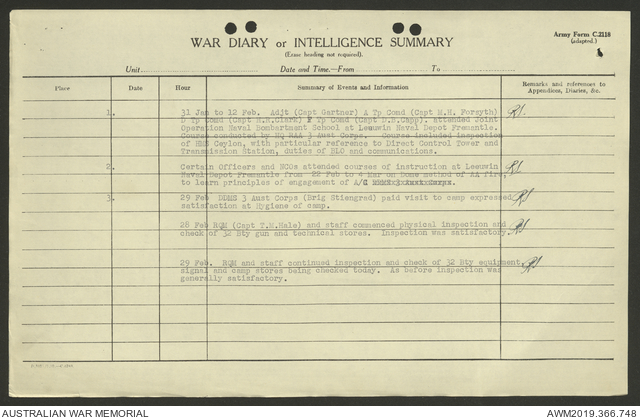 Army Form C.2118
(adapted.)
WAR DIARY or INTELLIGENCE SUMMARY
(Erase heading not required).
Unit Date and Time.—From To
Place Date Hour Summary of Events and Information Remarks and references to
Appendices, Diaries, &c.
1. 31 Jan to 12 Feb. Adjt (Capt Gartner) A Tp Comd (Capt H.H. Forsyth)
D Tp Comd (Capt H.R.Clark) F Tp Comd (Capt D.B.Capp). attended Joint
Operation Naval Bombartment School at Leeuwin Naval Depot Fremantle.
Course conducted by HQ RAA 3 Aust Corps. Course included inspection
of HMS Ceylon, with particular reference to Direct Control Tower and
Transmission Station, duties of BLO and communications.
2. Certain Officers and NCOs attended courses of instruction at Leeuwin
Naval Depot Fremantle from 22 Feb to 4 Mar on Dome method of AA fire,
to learn principles of engagement of A/C
3. 29 Feb DDMS 3 Aust Corps (Brig Stiengrad) paid visit to camp expressed
satisfaction at Hygiene of camp.
28 Feb RQM (Capt T.M.Hale) and staff commenced physical inspection and
check of 32 Bty gun and technical stores. Inspection was satisfactory.
29 Feb. RQM and staff continued inspection and check of 32 Bty equipment,
signal and camp stores being checked today. As before inspection was
generally satisfactory.
AUSTRALIAN WAR MEMORIAL AWM2019.366.748